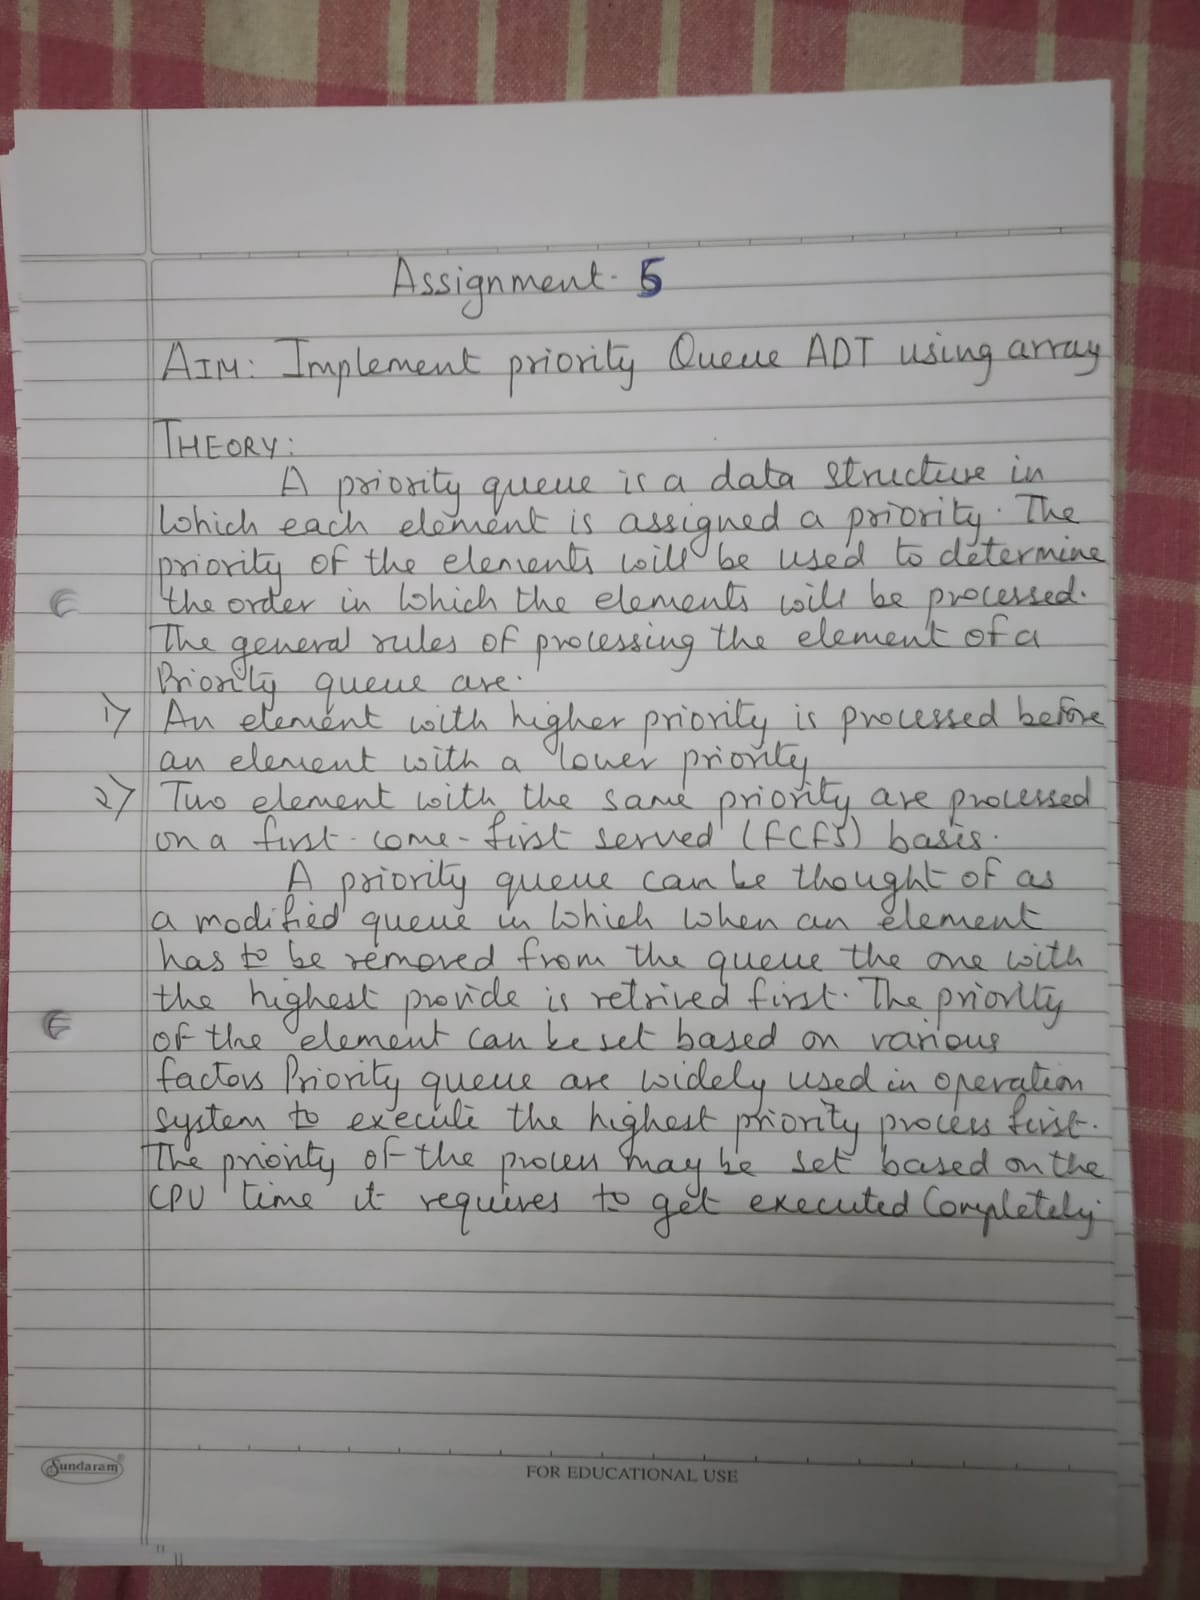 Assignment - 5
AIM: Implement priority Queue ADT using array
THEORY:
A priority queue is a data structure in
which each element is assigned a priority. The
priority of the elements will be used to determine
the order in which the elements will be processed.
The general rules of processing the element of a
Priority queue are.
1) An element with higher priority is processed before
an element with a lower priority
2) Two element with the same priority are processed
on a first-come-first served (FCFS) basis.
A priority queue can be thought of as
a modified queue in which when an element
has to be removed from the queue the one with
the highest provide is retrived first. The priority
of the element can be set based on various
factors Priority queue are widely used in operation
system to execute the highest priority process first.
The priority of the process may be set based on the
CPU time it requires to get executed Completely.
Sundaram
FOR EDUCATIONAL USE